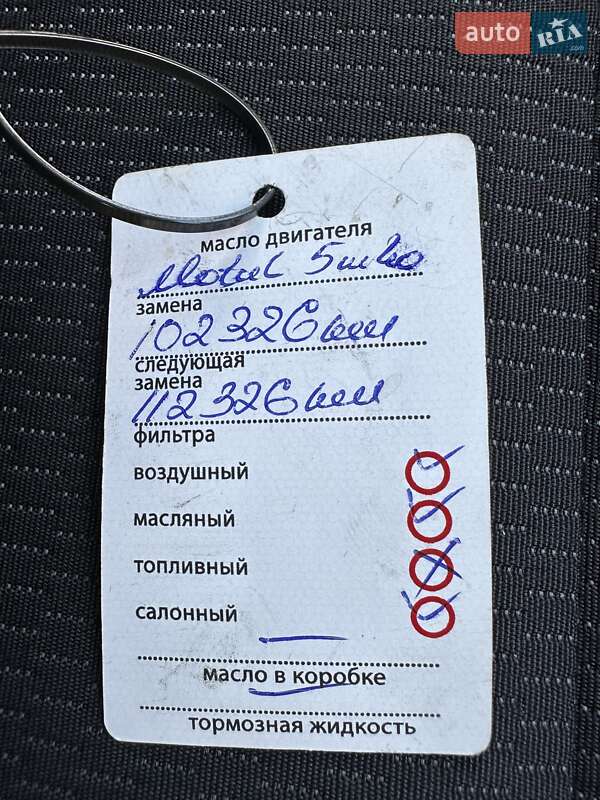 auto RIA .com
масло двигателя
Motul 5w40
замена
102326 км
следующая
замена
112326 км
фильтра
воздушный
масляный
топливный
салонный
масло в коробке
тормозная жидкость